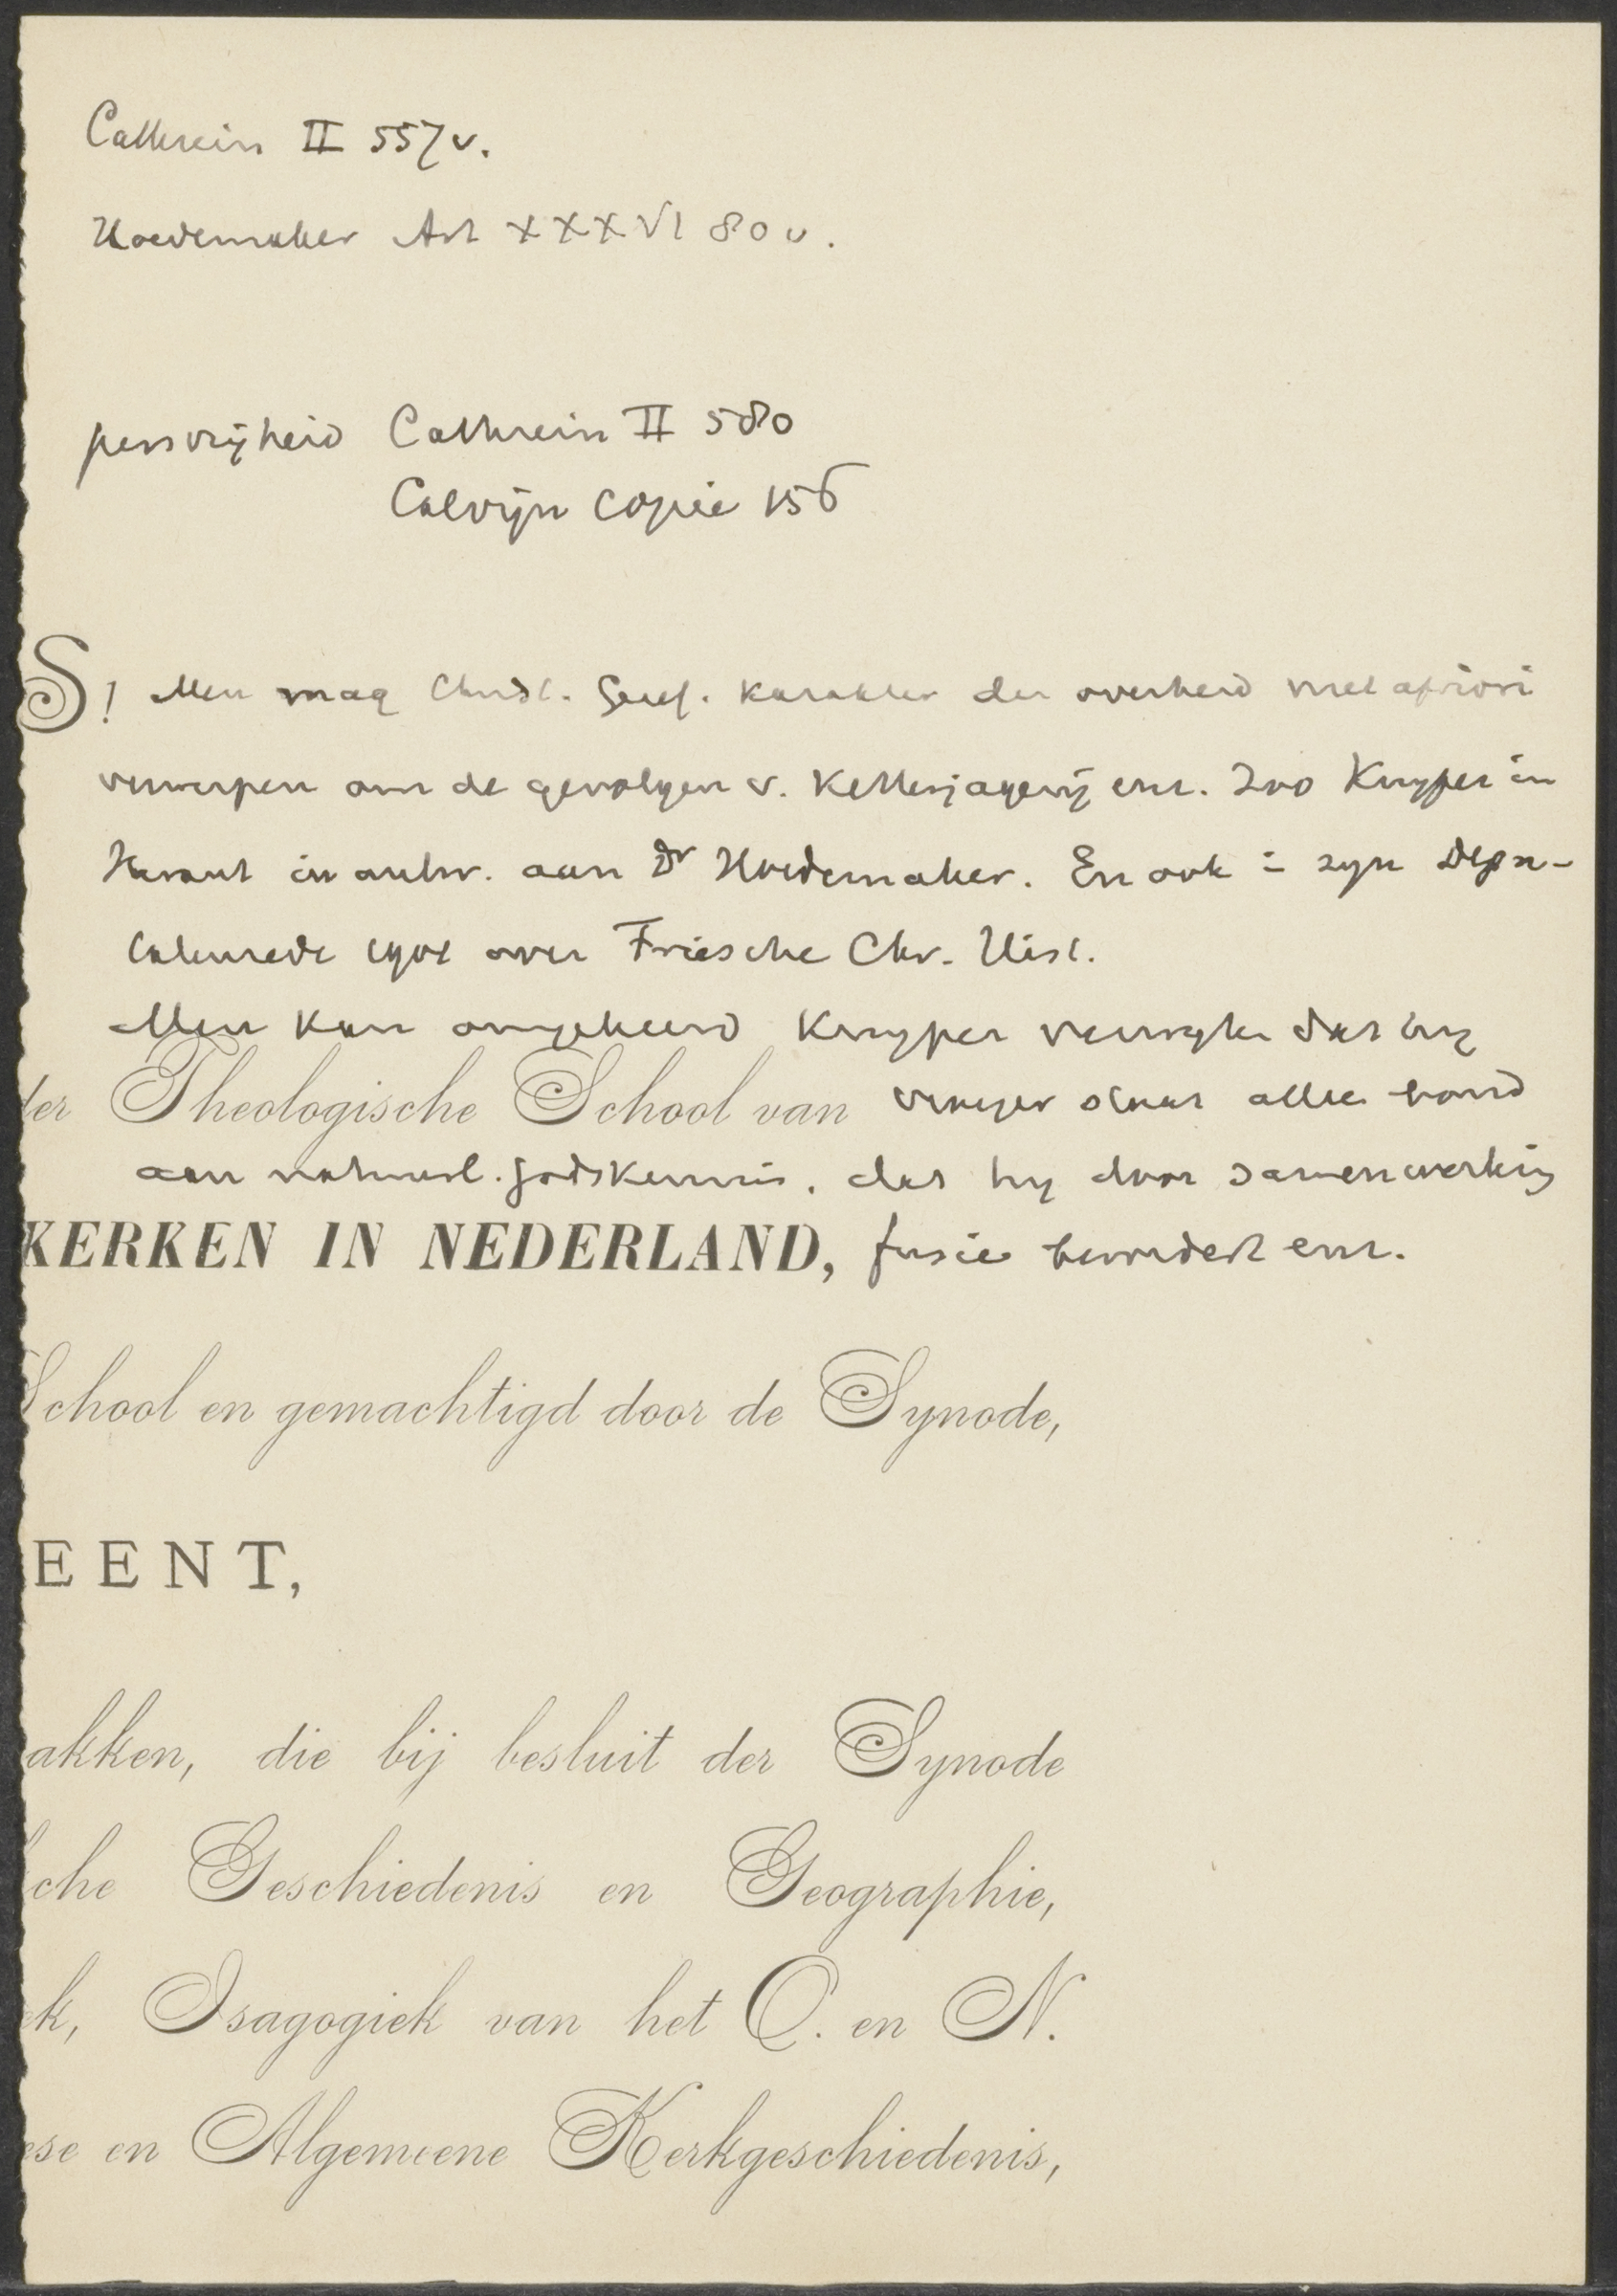 Cathrein II 557 v.
Hoedemaker Art XXXVI 80 v.
persvrijheid Cathrein II 580
Calvijn copie 156
S! Men mag Christ. Geref. karakter der overheid niet apriori
verwerpen om de gevolgen v. Ketterjagerij enz. Zoo Kuyper in
Heraut in antw. aan Dr Hoedemaker. En ook in zyn Depu-
tatenrede 1901 over Friesche Chr. Hist.
Men kan omgekeerd Kuyper verwyten dat hy
der Theologische School van vroeger staat alle band
aan natuurl. godskennis, dat hy door samenwerking
KERKEN IN NEDERLAND, fusie bevordert enz.
School en gemachtigd door de Synode,
EENT,
akken, die bij besluit der Synode
che Geschiedenis en Geographie,
ek, Isagogiek van het O. en N.
ese en Algemeene Kerkgeschiedenis,